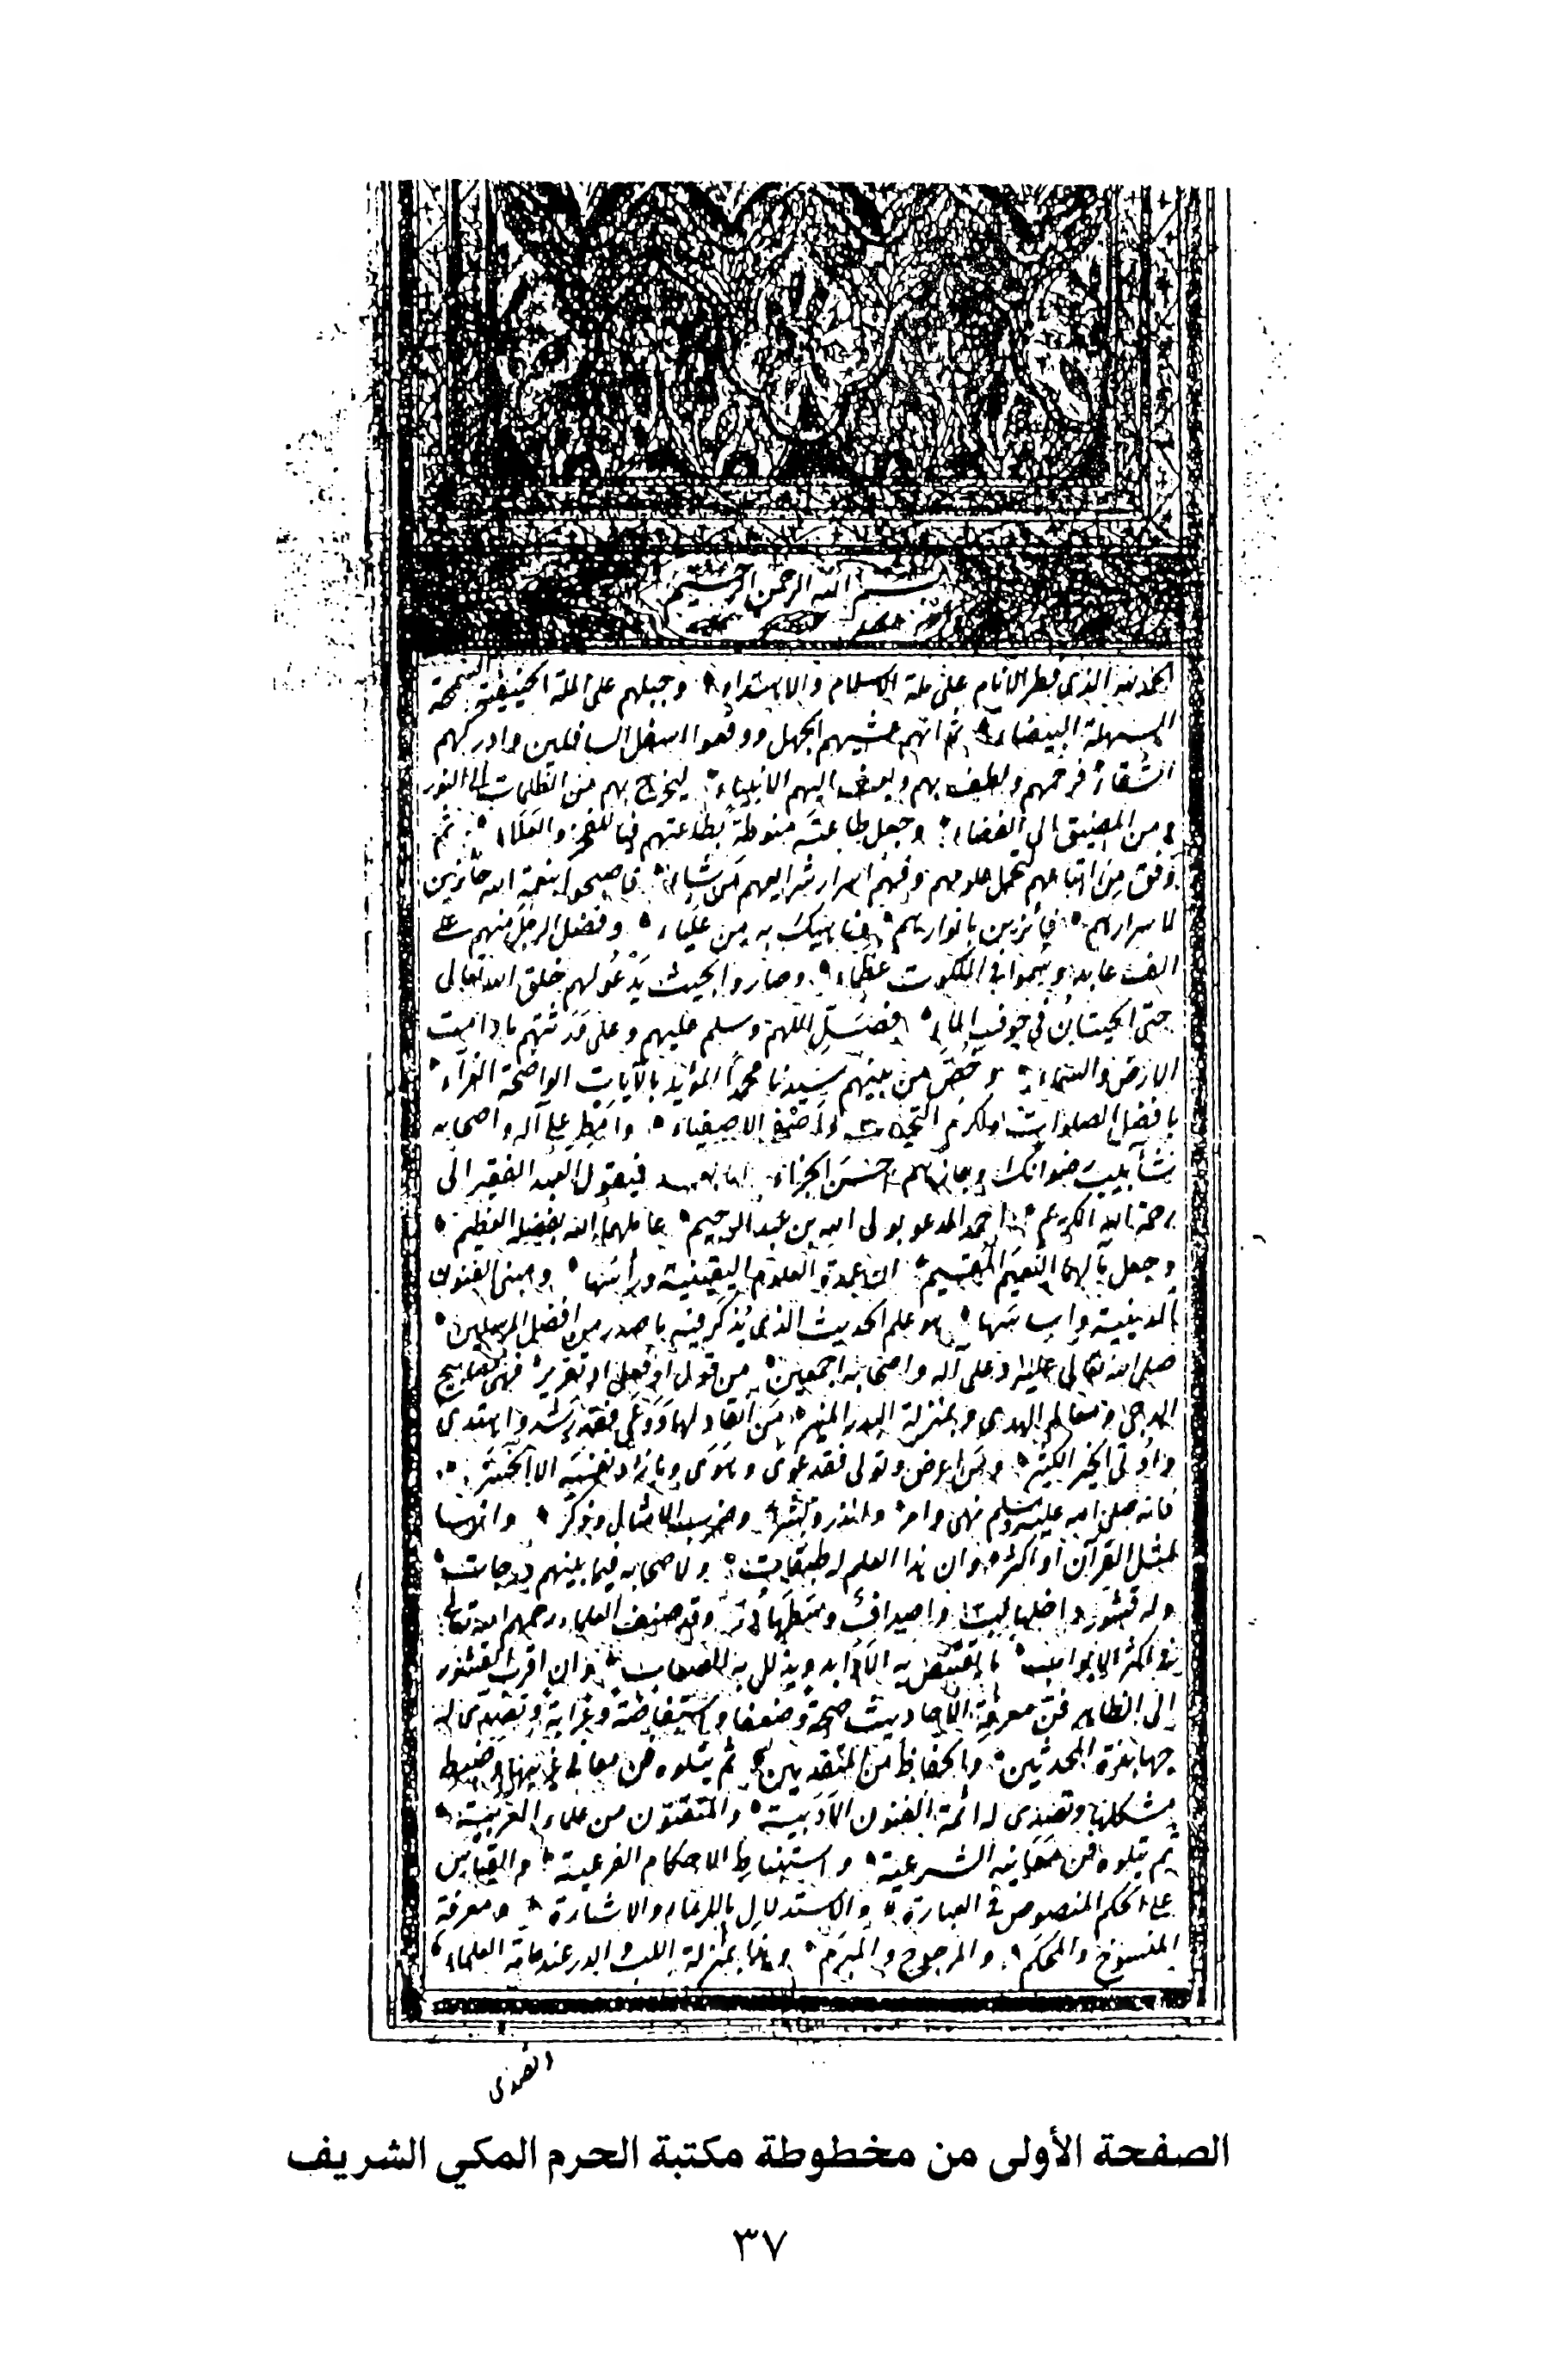 بسم الله الرحمن الرحيم
الحمد لله الذي فطر الأنام على ملة الاسلام والاهتداء وجبلهم على الملة الحنيفية السمحة
السهلة البيضاء ثم انهم غشيهم الجهل ووقعوا اسفل السافلين وادركهم
الشقاء فرحمهم ولطف بهم وبعث اليهم الانبياء ليخرج بهم من الظلمات الى النور
ومن المضيق الى الفضاء وجعل طاعته منوطة بطاعتهم فيا للفخر والعلاء ثم
وفق من اتباعهم لتحمل علومهم وفهم اسرار شرايعهم من شاء فاصبحوا بنعمة الله حائزين
لاسرارهم فائزين بانوارهم فناهيك به من علياء وفضل الرجل منهم على
الف عابد وسموا في الملكوت عظماء وصاروا بحيث يدعو لهم خلق الله تعالى
حتى الحيتان في جوف الماء فصل اللهم وسلم عليهم وعلى ورثتهم ما دامت
الارض والسماء وخص من بينهم سيدنا محمدا المؤيد بالآيات الواضحة الغراء
بافضل الصلوات واكرم التحيات واصفى الاصفياء وامطر على آله واصحابه
شآبيب رضوانك وجازهم احسن الجزاء اما بعد فيقول العبد الفقير الى
رحمة الله الكريم احمد المدعو بولي الله بن عبد الرحيم عاملهما الله بفضله العظيم
وجعل مآلهما النعيم المقيم ان عمدة العلوم اليقينية ورأسها ومبنى الفنون
الدينية واساسها هو علم الحديث الذي يذكر فيه ما صدر من افضل المرسلين
صلى الله تعالى عليه وعلى آله واصحابه اجمعين من قول او فعل او تقرير فهي مصابيح
الدجى ومعالم الهدى وبمنزلة البدر المنير من انقاد لها ووعى فقد رشد واهتدى
واوتي الخير الكثير ومن اعرض وتولى فقد غوى وهوى وما زاد نفسه الا التخسير
فانه صلى الله عليه وسلم نهى وامر وانذر وبشر وضرب الامثال وذكر وانها
لمثل القرآن او اكثر وان هذا العلم له طبقات ولاصحابه فيما بينهم درجات
وله قشور داخلها لب واصداف وسطها در وقد صنف العلماء رحمهم الله تعالى
في اكثر الابواب ما يقتنص به الاوابد ويذلل به الصعاب وان اقرب القشور
الى الظاهر فن معرفة الاحاديث صحة وضعفا واستفاضة وغرابة وتصدى له
جهابذة المحدثين والحفاظ من المتقدمين ثم يتلوه فن معاني غريبها وضبط
مشكلها وتصدى له ائمة الفنون الادبية والمتقنون من علماء العربية
ثم يتلوه فن معانيه الشرعية واستنباط الاحكام الفرعية والقياس
على الحكم المنصوص في العبارة والاستدلال بالايماء والاشارة ومعرفة
المنسوخ والمحكم والمرجوح والمبرم وهذا بمنزلة اللب والدر عند عامة العلماء
الصفحة الأولى من مخطوطة مكتبة الحرم المكي الشريف
٣٧